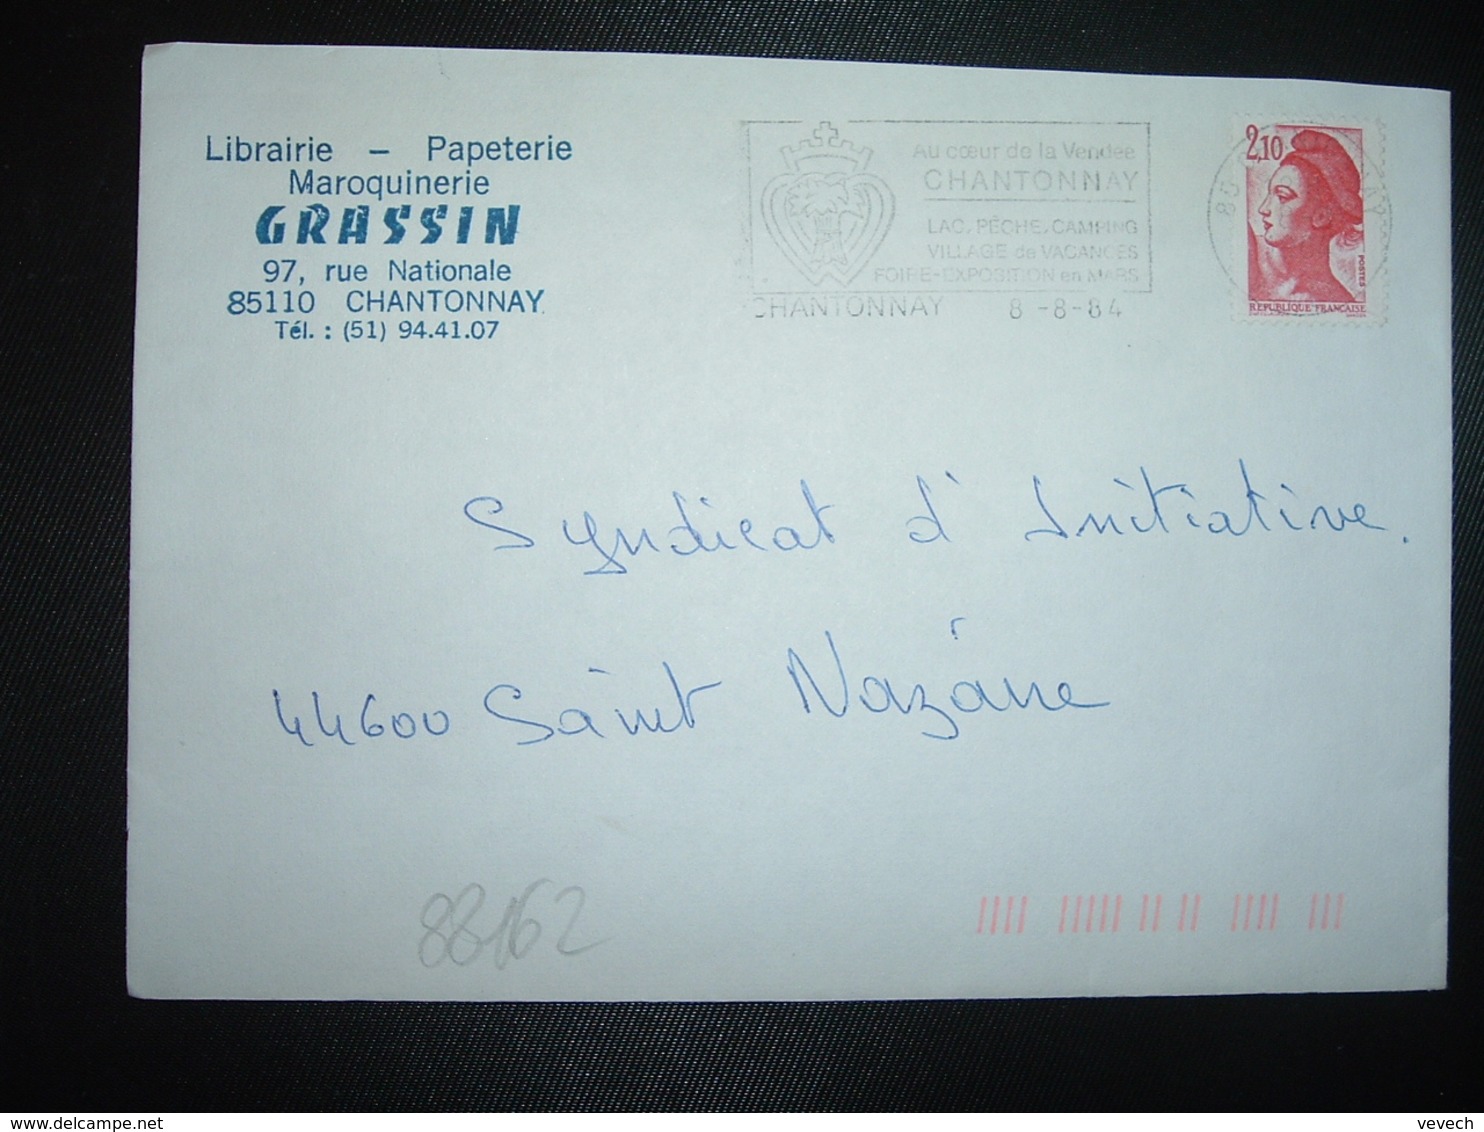 Librairie – Papeterie
Maroquinerie
GRASSIN
97, rue Nationale
85110 CHANTONNAY
Tél. : (51) 94.41.07
Au cœur de la Vendée
CHANTONNAY
LAC, PÊCHE, CAMPING
VILLAGE de VACANCES
FOIRE-EXPOSITION en MARS
CHANTONNAY 8-8-84
2,10
POSTES
REPUBLIQUE FRANÇAISE
85
Syndicat d'Initiative.
44600 Saint Nazaire
88162
delcampe.net
vevech